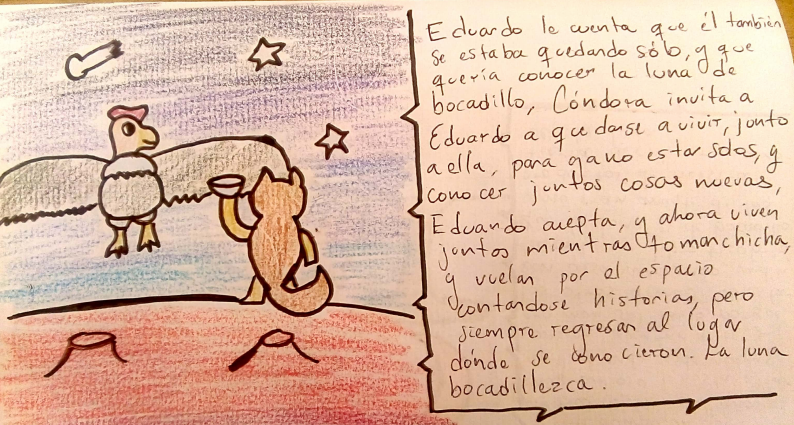 Eduardo le cuenta que él también
se estaba quedando sólo, y que
quería conocer la luna de
bocadillo, Cóndora invita a
Eduardo a quedarse a vivir, junto
a ella, para ya no estar solos, y
conocer juntos cosas nuevas,
Eduardo acepta, y ahora viven
juntos mientras toman chicha,
y vuelan por el espacio
contandose historias, pero
siempre regresan al lugar
dónde se conocieron. La luna
bocadillezca.